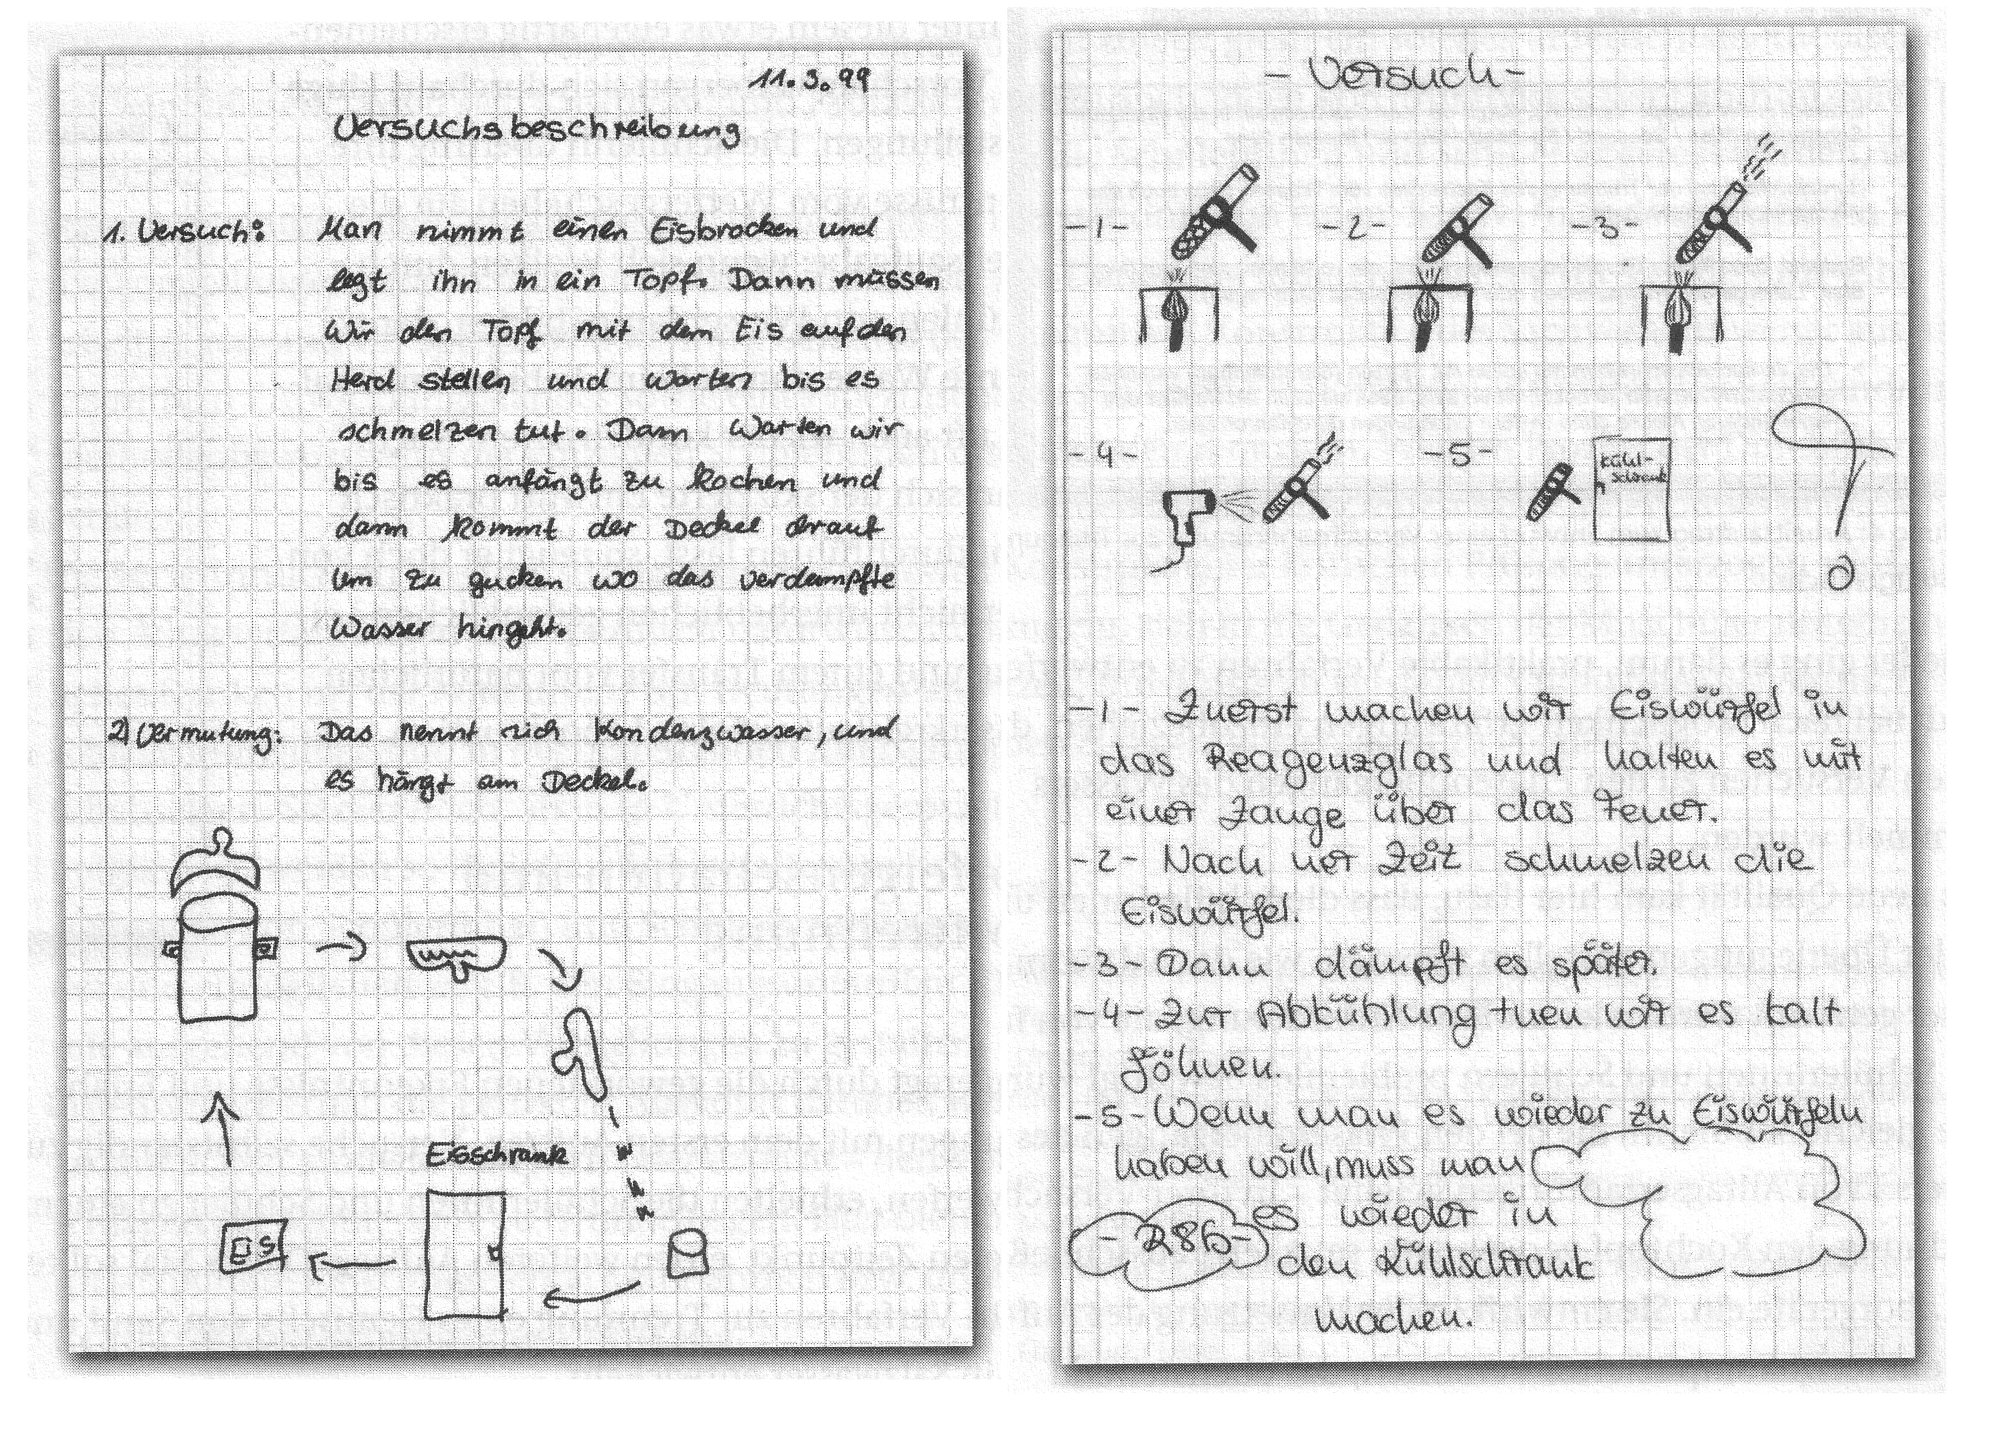 11.3.99
Versuchsbeschreibung
1. Versuch: Man nimmt einen Eisbrocken und
legt ihn in ein Topf. Dann müssen
Wir den Topf mit dem Eis auf den
Herd stellen und warten bis es
schmelzen tut. Dann warten wir
bis es anfängt zu kochen und
dann kommt der Deckel drauf
um zu gucken wo das verdampfte
Wasser hingeht.
2) Vermutung: Das nennt sich Kondenzwasser, und
es hängt am Deckel.
Eisschrank
EiS
- Versuch -
-1- -2- -3-
-4- -5-
Kühl-
schrank
-1- Zuerst machen wir Eiswürfel in
das Reagenzglas und halten es mit
einer Zange über das Feuer.
-2- Nach ner Zeit schmelzen die
Eiswürfel.
-3- Dann dämpft es später.
-4- Zur Abkühlung tuen wir es kalt
föhnen.
-5- Wenn man es wieder zu Eiswürfeln
haben will, muss man
es wieder in
den Kühlschrank
machen.